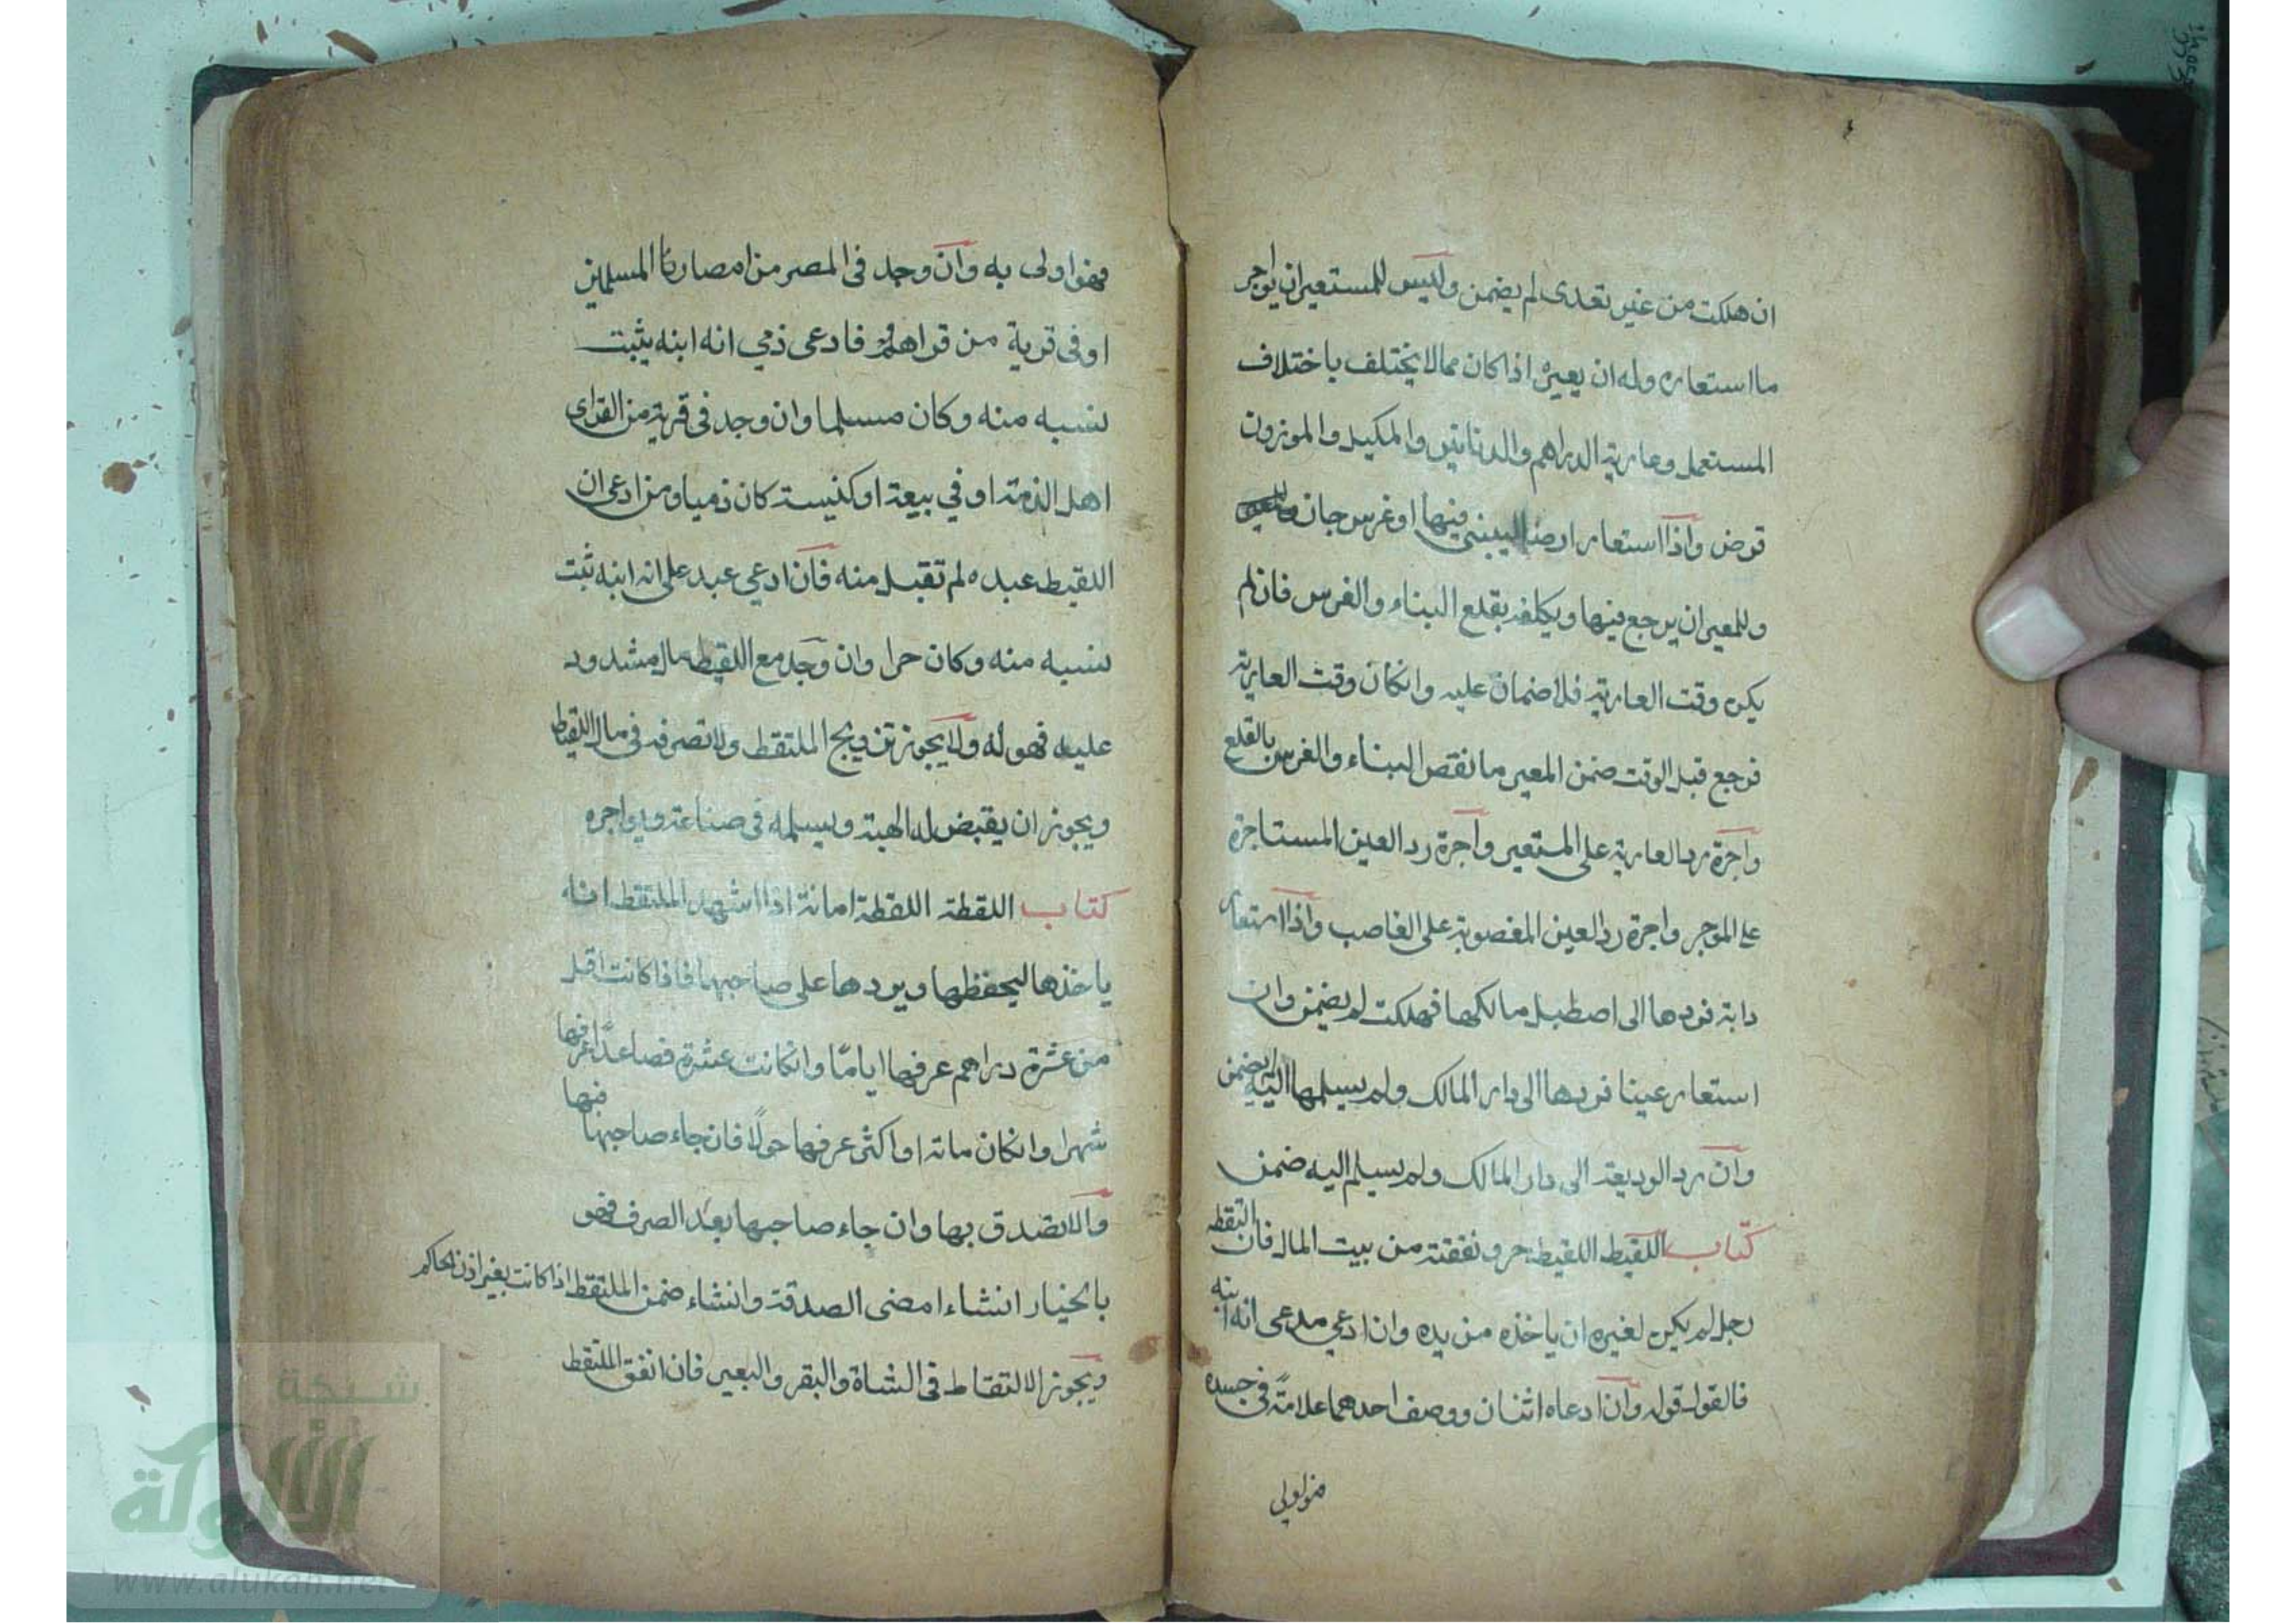 ان هلكت من غير تعدى لم يضمن وليس للمستعير ان يواجر
ما استعاره وله ان يعيره اذا كان مما لا يختلف باختلاف
المستعمل وعارية الدراهم والدنانير والمكيل والموزون
قرض واذا استعار ارضا ليبنى فيها او غرس جان
وللمعير ان يرجع فيها ويكلفه بقلع البناء والغرس فان لم
يكن وقت العارية فلا ضمان عليه وانكان وقت العارية
فرجع قبل الوقت ضمن المعير ما نقص البناء والغرس بالقلع
واجرة رد العارية على المستعير واجرة رد العين المستاجرة
على الموجر واجرة رد العين المغصوبة على الغاصب واذا استعار
دابة فردها الى اصطبل مالكها فهلكت لم يضمن وان
استعار عينا فردها الى دار المالك ولم يسلمها اليه لم يضمن
وان رد الوديعة الى دار المالك ولم يسلم اليه ضمن
كتاب اللقيط اللقيط حر ونفقته من بيت المال فان التقطه
رجل لم يكن لغيره ان ياخذه من يده وان ادعى مدعى انه ابنه
فالقول قوله وان ادعاه اثنان ووصف احدهما علامة فى جسده
فهو اولى به وان وجد فى المصر من امصارنا المسلمين
او فى قرية من قراهم فادعى ذمي انه ابنه يثبت
نسبه منه وكان مسلما وان وجد فى قرية من القراى
اهل الذمة او في بيعة او كنيسة كان ذميا ومن ادعى ان
اللقيط عبده لم تقبل منه فان ادعي عبد على انه ابنه ثبت
نسبه منه وكان حرا وان وجد مع اللقيط مال مشدود
عليه فهو له ولا يجوز تزويج الملتقط ولا تصرفه فى مال اللقيط
ويجوز ان يقبض له الهبة ويسلمه فى صناعة ويواجره
كتاب اللقطة اللقطة امانة اذا اشهد الملتقط انه
ياخذها ليحفظها ويردها على صاحبها فاذا كانت اقل
من عشرة دراهم عرفها اياما وانكانت عشرة فصاعدًا عرفها
شهرا وانكان مائة او اكثر عرفها حولًا فان جاء صاحبها فبها
والا تصدق بها وان جاء صاحبها بعد الصرف فهو
بالخيار انشاء امضى الصدقة وانشاء ضمن الملتقط اذا كانت بغير اذن الحاكم
ويجوز الالتقاط فى الشاة والبقر والبعير فان انفق الملتقط
شبكة
الألوكة
www.alukah.net